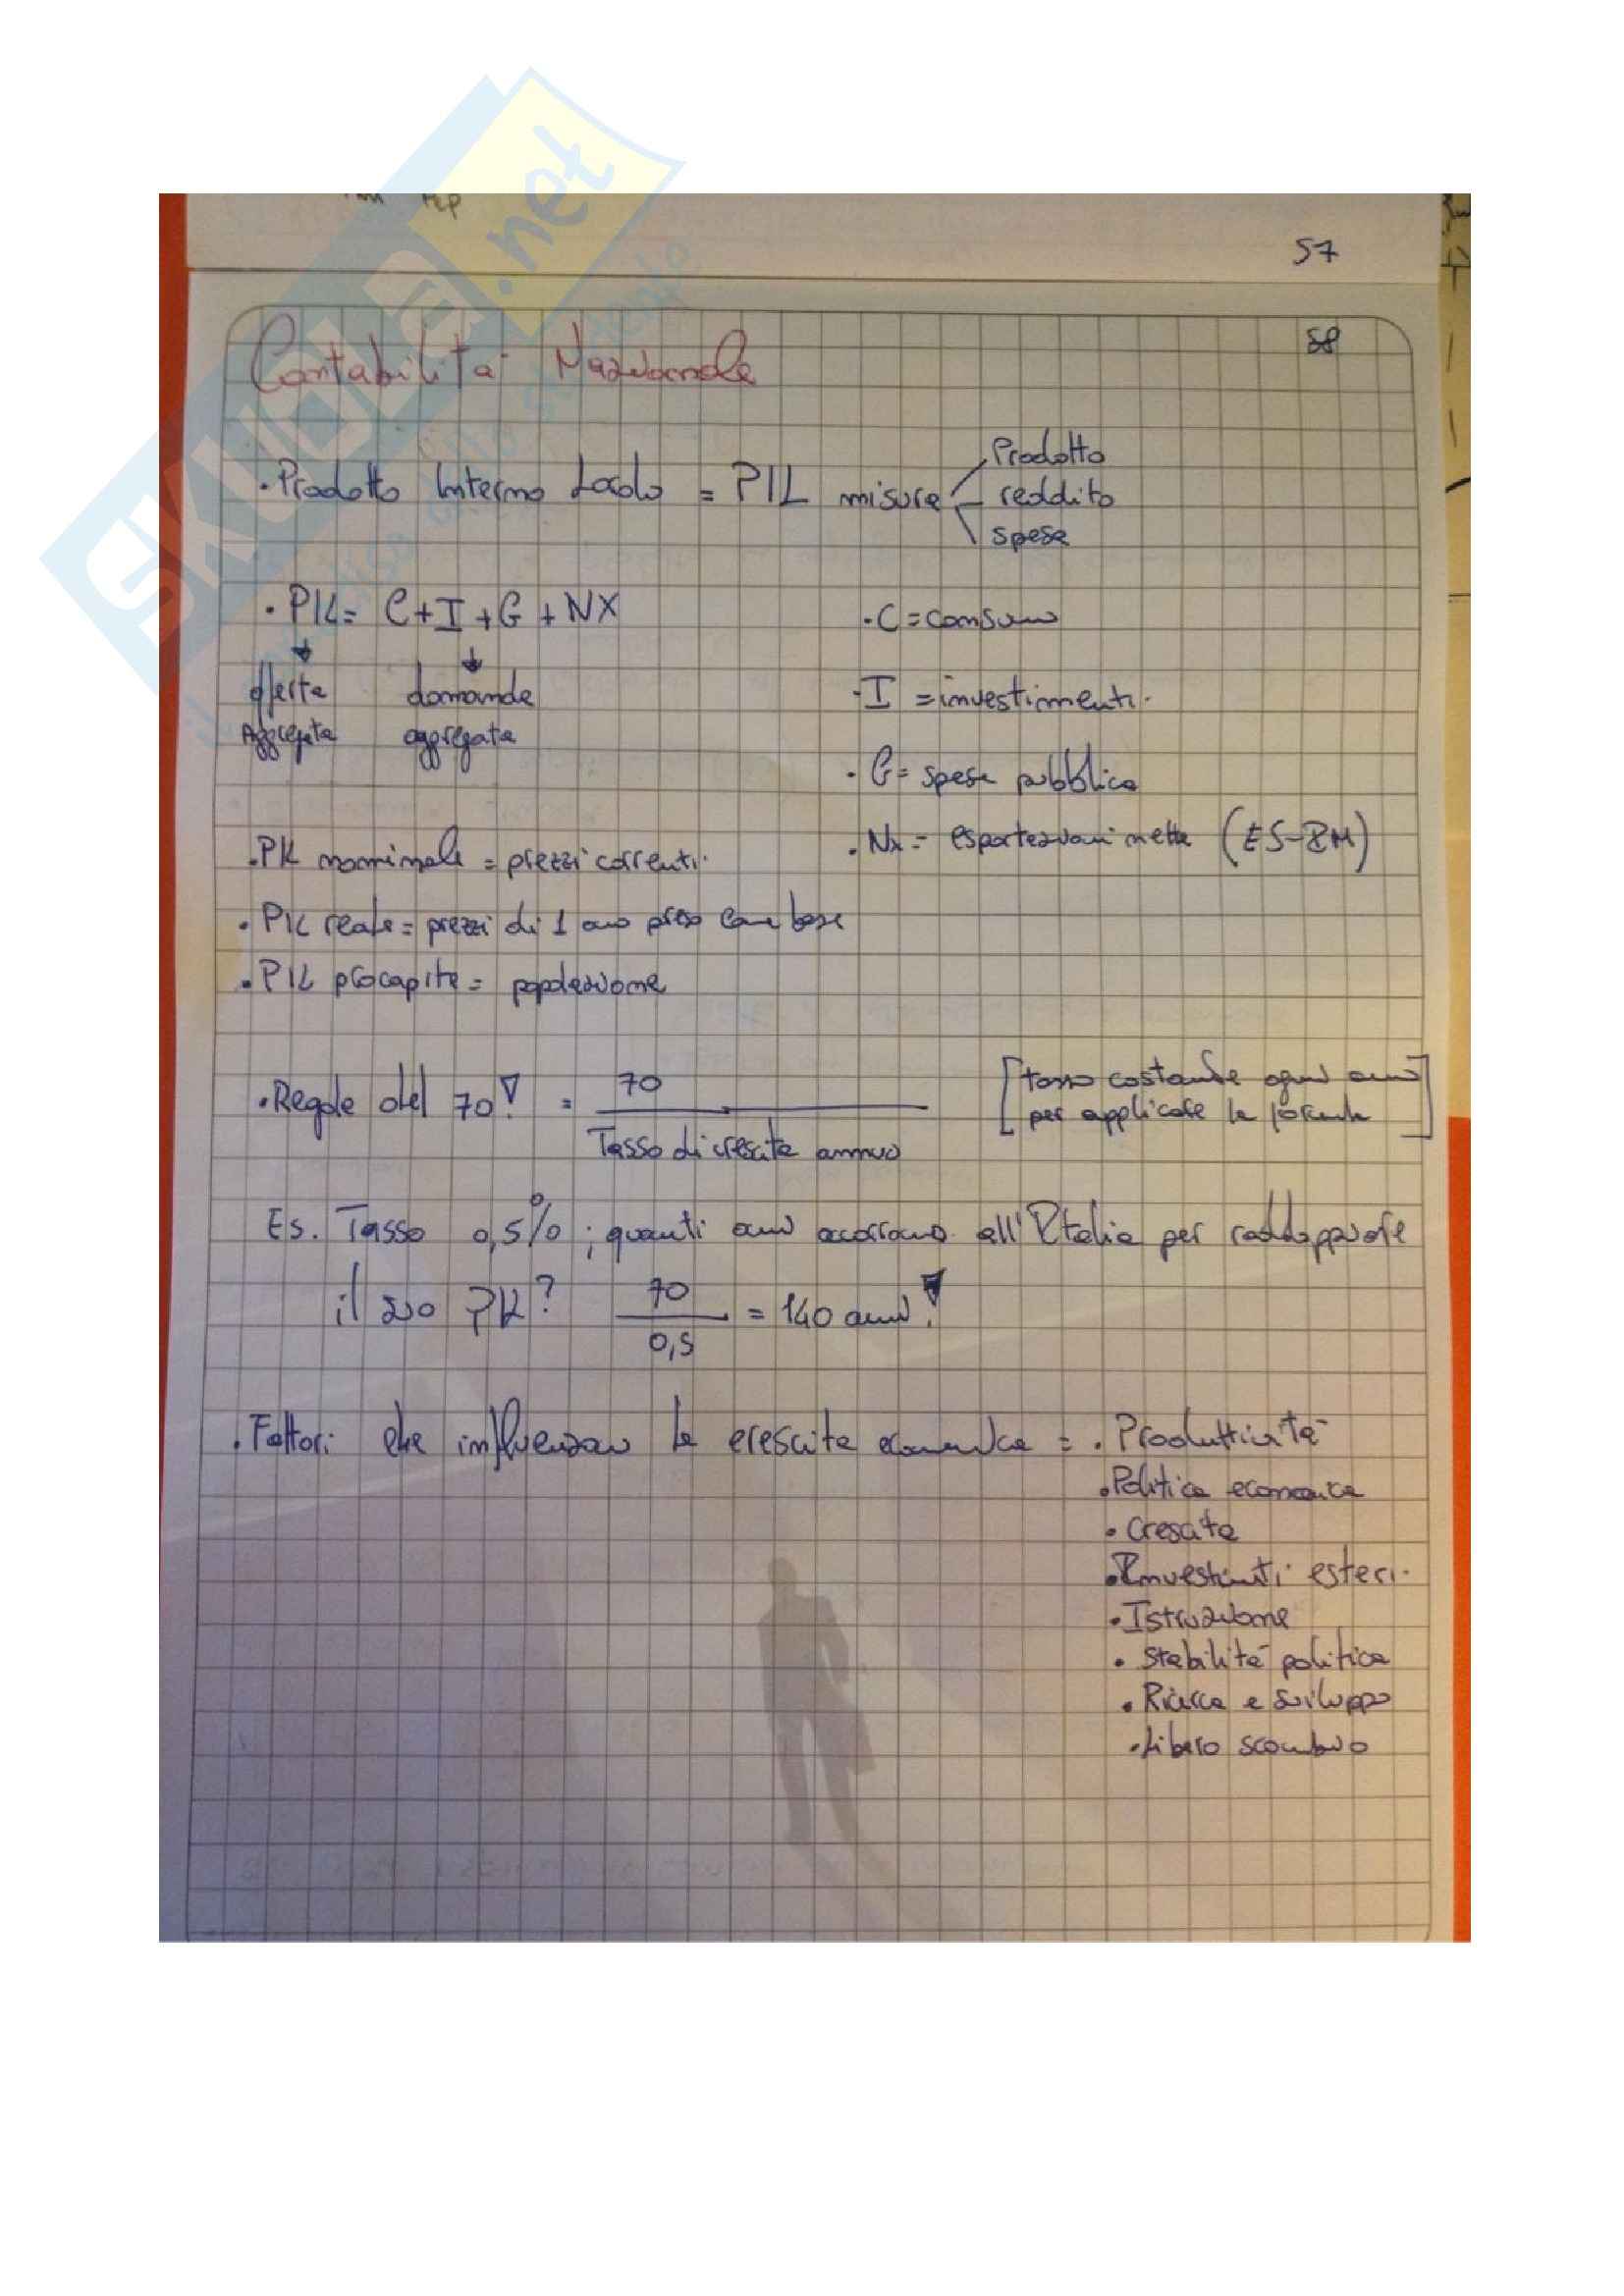 SKUOLA.net
57
58
Contabilità Nazionale
Prodotto
• Prodotto Interno Lordo = PIL misura reddito
spesa
• PIL = C+I+G+NX
• C = consumo
offerta domanda
• I = investimenti
Aggregata aggregata
• G = spesa pubblica
• Nx = esportazioni nette (ES-IM)
• PIL nominale = prezzi correnti
• PIL reale = prezzi di 1 anno preso come base
• PIL procapite = popolazione
• Regola del 70! = 70
Tasso di crescita annuo
[tasso costante ogni anno
per applicare la formula]
Es. Tasso 0,5% ; quanti anni occorrono all'Italia per raddoppiare
il suo PIL? 70
0,5
= 140 anni!
• Fattori che influenzano la crescita economica = • Produttività
• Politica economica
• Crescita
• Investimenti esteri
• Istruzione
• Stabilità politica
• Ricerca e sviluppo
• Libero scambio